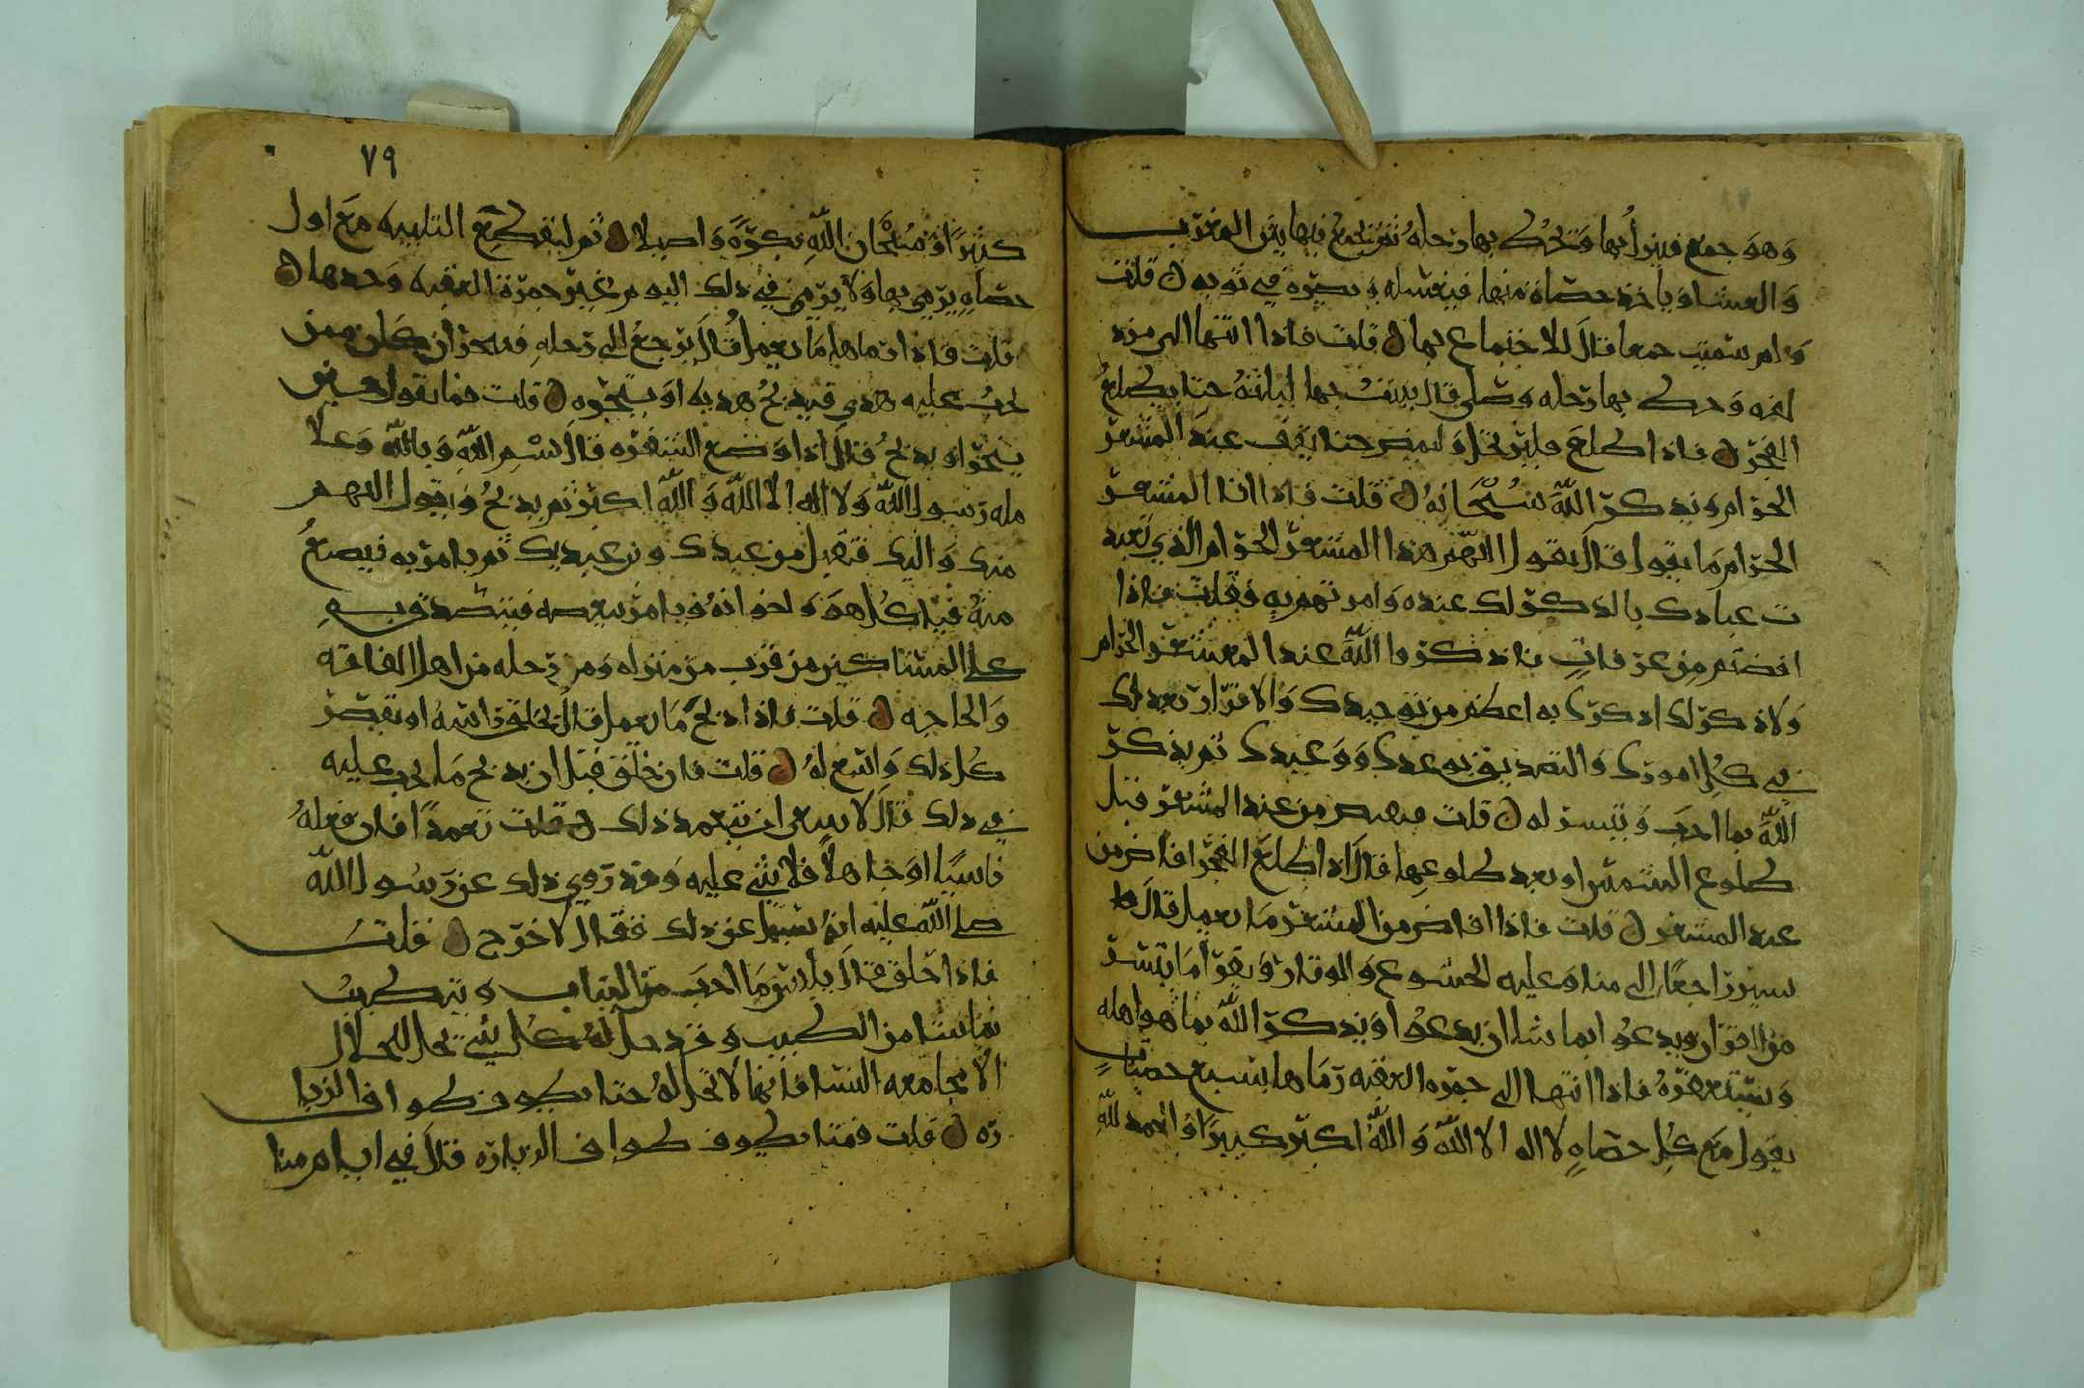 وهو جمع فينزل بها ويحط بها رحله ثم يجمع فيها بين المغرب
والعشا وياخذ حصاة منها فيغسله ويصره في ثوبه قلت
ولم سميت جمعا قال للاجتماع بها قلت فاذا انتها الى مزد
لفه وحط بها رحله وصلى قال يبيت بها ليلته حتا يطلع
الفجر فاذا طلع فليرتحل وليمض حتا يقف عند المشعر
الحرام ويذكر الله سبحانه قلت فاذا اتا المشعر
الحرام ما يقول قال يقول اللهم هذا المشعر الحرام الذي تعبد
ت عبادك بالذكر لك عنده وامرتهم به فقلت فاذا
افضتم من عرفات فاذكروا الله عند المشعر الحرام
ولا ذكر لك اذكرك به اعظم من توحيدك والاقرار بعدلك
في كل امورك والتصديق بوعدك ووعيدك ثم يذكر
الله بما احب وتيسر له قلت فيفيض من عند المشعر قبل
طلوع الشمس او بعد طلوعها قال اذا طلع الفجر افاض من
عند المشعر قلت فاذا افاض من المشعر ما يعمل قال
يسير راجعا الى منا وعليه الخشوع والوقار ويقرا ما تيسر
من القران ويدعو ابما شا ان يدعو او يذكر الله بما هو اهله
ويستغفره فاذا انتها الى جمره العقبه رماها بسبع حصيات
يقول مع كل حصاه لا اله الا الله والله اكبر كبيرا والحمد لله
٧٩
كثيرا وسبحان الله بكرة واصيلا ثم ليقطع التلبيه مع اول
حصاه يرمي بها ولا يرمي في ذلك اليوم غير جمرة العقبه وحدها
قلت فاذا رماها ما يعمل قال يرجع الى رحله فينحر ان كان ممن
يجب عليه هدي فيذبح هديه او ينحره قلت فما يقول حين
ينحر او يذبح قال اذا وضع الشفره قال بسم الله وبالله وعلا
مله رسول الله ولا اله الا الله والله اكبر ثم يذبح ويقول اللهم
منك واليك فتقبل من عبدك وبن عبديك ثم يامر به فيصنع
منه فياكل هو واخوانه ويامر ببعضه فيتصدق به
على المساكين من قرب من منزله ومن رحله من اهل الفاقه
والحاجه قلت فاذا ذبح ما يعمل قال يحلق راسه او يقصر
كل ذلك واسع له قلت فان حلق قبل ان يذبح ما يجب عليه
في ذلك قال لا ينبغي ان يتعمد ذلك قلت تعمدا فان فعله
ناسيا او جاهلا فلا شي عليه وقد روي ذلك عن رسول الله
صلى الله عليه انه سيل عن ذلك فقال لا حرج فقلت
فاذا حلق قال يلبس ما احب من الثياب ويتطيب
بما شا من الطيب وقد حل له كل شي يحل للحلال
الا مجامعه النسا فانها لا تحل له حتا يطوف طواف الزيا
ره قلت فمتا يطوف طواف الزياره قال في ايام منا